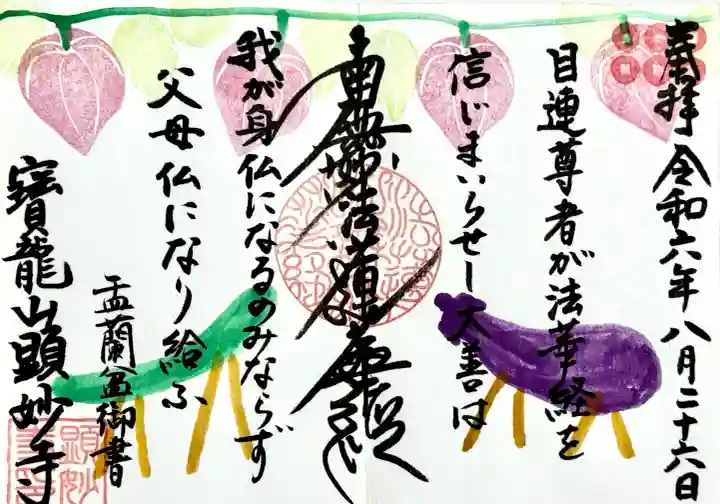 奉拝 令和六年八月二十六日
目連尊者が法華経を
信じまいらせし大善は
南無妙法蓮華経
我が身仏になるのみならず
父母仏になり給ふ
盂蘭盆御書
寳龍山顕妙寺
顕妙